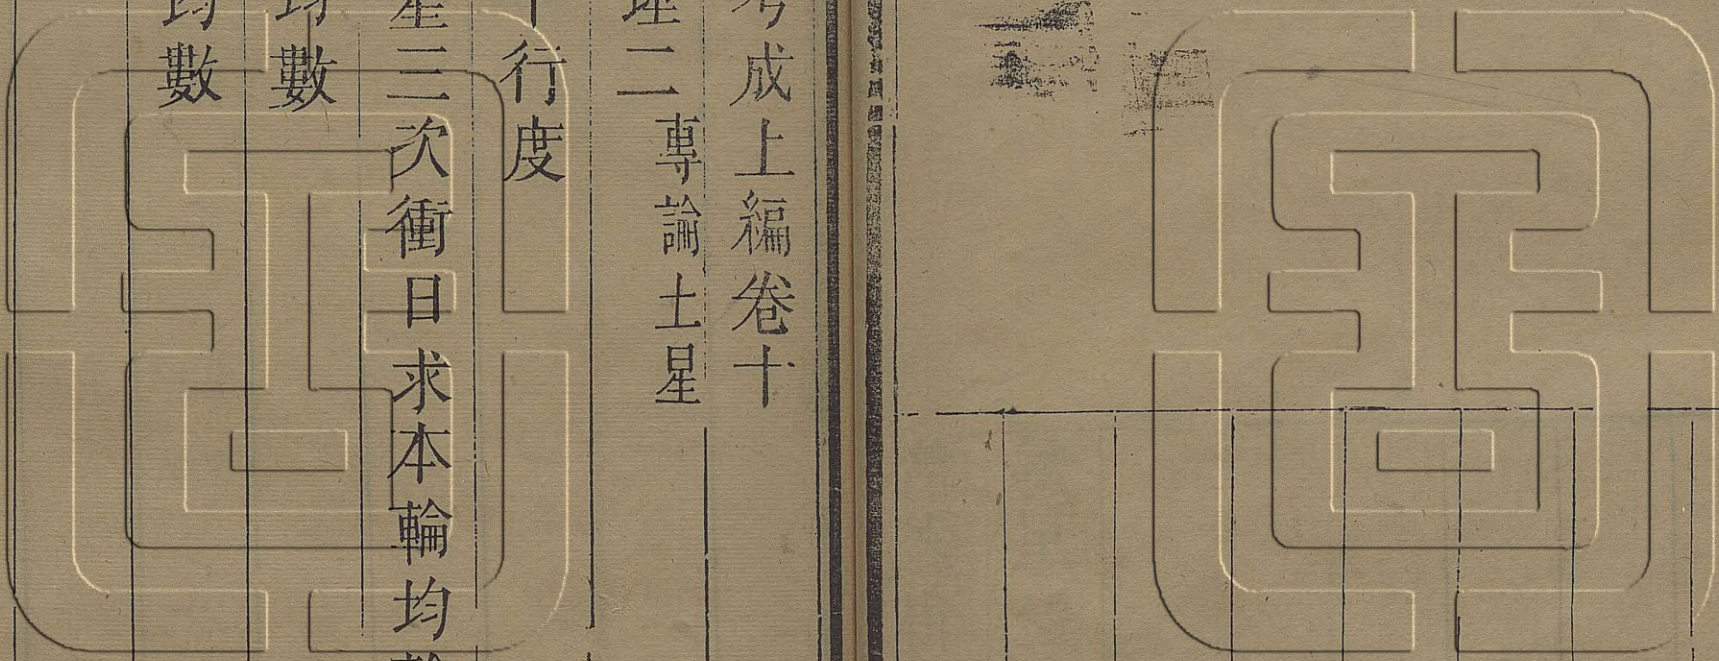 考成上編卷十
理二 專論土星
行度
星三次衝日求本輪均輪
均數
均數